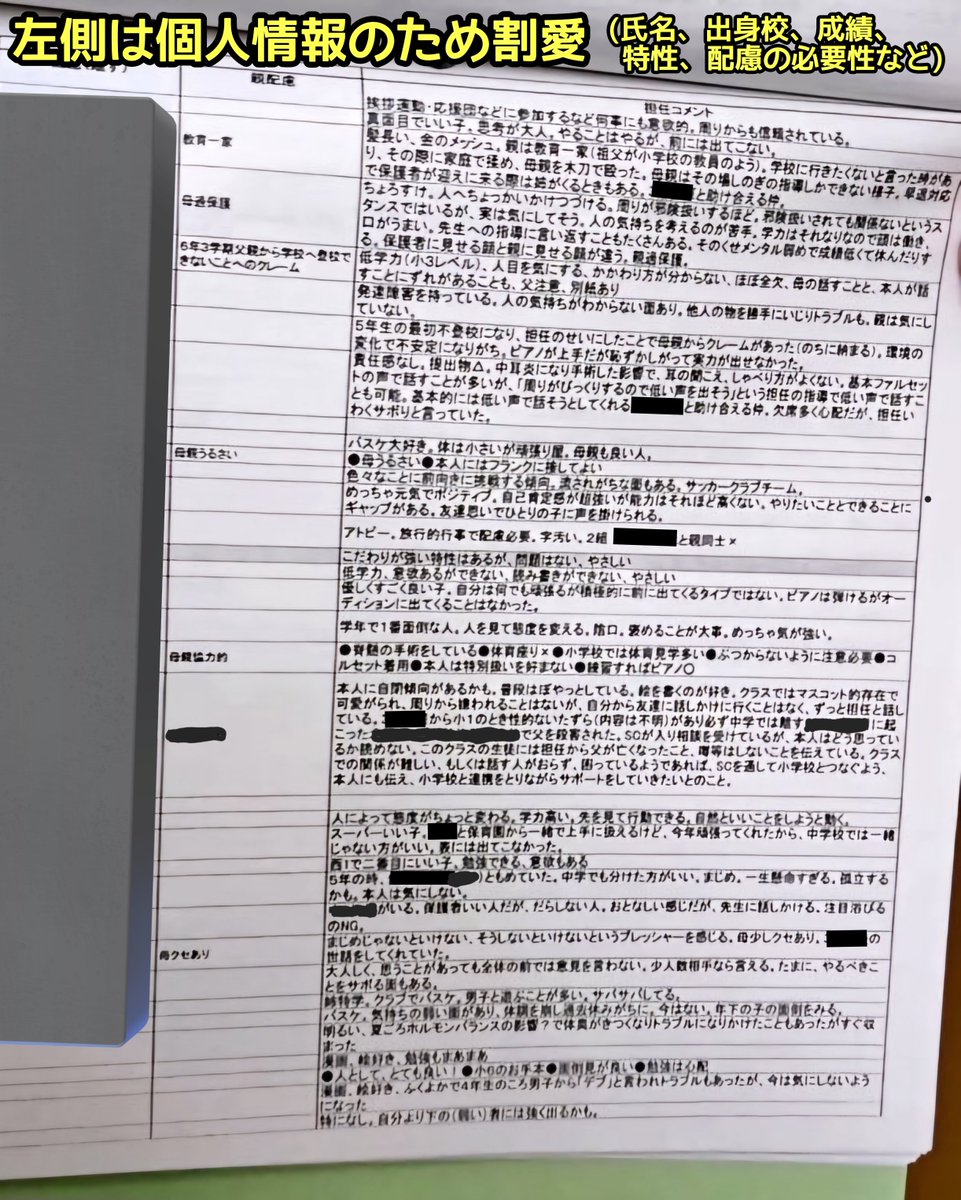 左側は個人情報のため割愛(氏名、出身校、成績、
特性、配慮の必要性など)
親配慮
担任コメント
挨拶運動・応援団などに参加するなど何事にも意欲的。周りからも信頼されている。
真面目でいい子。思考が大人。やることはやるが、前には出てこない。
教育一家
髪長い、金のメッシュ。親は教育一家(祖父が小学校の教員のよう)。学校に行きたくないと言った時があ
り、その際に家庭で揉め、母親を木刀で殴った。母親はその場しのぎの指導しかできない様子。早退対応
で保護者が迎えに来る際は姉がくるときもある。 と助け合える仲。
母過保護
ちょろすけ。人へちょっかいかけつづける。周りが邪険扱いするほど。邪険扱いされても関係ないというス
タンスではいるが、実は気にしてそう。人の気持ちを考えるのが苦手。学力はそれなりなので頭は働き、
口がうまい。先生への指導に言い返すこともたくさんある。そのくせメンタル弱めで成績低くて休んだりす
る。保護者に見せる顔と親に見せる顔が違う。親過保護。
6年3学期父親から学校へ登校で
きないことへのクレーム
低学力(小3レベル)、人目を気にする、かかわり方が分からない、ほぼ全欠、母の話すことと、本人が話
すことにずれがあることも、父注意、別紙あり
発達障害を持っている。人の気持ちがわからない面あり。他人の物を勝手にいじりトラブルも。親は気にし
ていない。
5年生の最初不登校になり、担任のせいにしたことで母親からクレームがあった(のちに納まる)。環境の
変化で不安定になりがち。ピアノが上手だが恥ずかしがって実力が出せなかった。
責任感なし。提出物△。中耳炎になり手術した影響で、耳の聞こえ、しゃべり方がよくない。基本ファルセッ
トの声で話すことが多いが、「周りがびっくりするので低い声を出そう」という担任の指導で低い声で話すこ
とも可能。基本的には低い声で話そうとしてくれる と助け合える仲。欠席多く心配だが、担任い
わくサボりと言っていた。
バスケ大好き。体は小さいが頑張り屋。母親も良い人。
母親うるさい
●母うるさい●本人にはフランクに接してよい
色々なことに前向きに挑戦する傾向。流されがちな面もある。サッカークラブチーム。
めっちゃ元気でポジティブ。自己肯定感が超強いが能力はそれほど高くない。やりたいこととできることに
ギャップがある。友達思いでひとりの子に声を掛けられる。
アトピー。旅行的行事で配慮必要。字汚い。2組 と親同士×
こだわりが強い特性はあるが、問題はない、やさしい
低学力、意欲あるができない、読み書きができない、やさしい
優しくすごく良い子。自分は何でも頑張るが積極的に前に出てくるタイプではない。ピアノは弾けるがオー
ディションに出てくることはなかった。
学年で1番面倒な人。人を見て態度を変える。陰口。褒めることが大事。めっちゃ気が強い。
母親協力的
●脊髄の手術をしている●体育座り×●小学校では体育見学多い●ぶつからないように注意必要●コ
ルセット着用●本人は特別扱いを好まない●練習すればピアノ○
本人に自閉傾向があるかも。普段はぼやっとしている。絵を書くのが好き。クラスではマスコット的存在で
可愛がられ、周りから嫌われることはないが、自分から友達に話しかけに行くことはなく、ずっと担任と話し
ている。 から小1のとき性的ないたずら(内容は不明)があり必ず中学では離す に起
こった で父を殺害された。SCが入り相談を受けているが、本人はどう思ってい
るか読めない。このクラスの生徒には担任から父が亡くなったこと、噂等はしないことを伝えている。クラス
での関係が難しい、もしくは話す人がおらず、困っているようであれば、SCを通して小学校とつなぐよう、
本人にも伝え、小学校と連携をとりながらサポートをしていきたいとのこと。
人によって態度がちょっと変わる。学力高い。先を見て行動できる。自然といいことをしようと動く。
スーパーいい子。 と保育園から一緒で上手に扱えるけど、今年頑張ってくれたから、中学校では一緒
じゃない方がいい。表には出てこなかった。
西1で二番目にいい子、勉強できる、意欲もある
5年の時、 ともめていた。中学でも分けた方がいい。まじめ。一生懸命すぎる。孤立する
かも。本人は気にしない。
がいる。保護者いい人だが、だらしない人。おとなしい感じだが、先生に話しかける。注目浴びる
のNG。
母クセあり
まじめじゃないといけない、そうしないといけないというプレッシャーを感じる。母少しクセあり。 の
世話をしてくれていた。
大人しく、思うことがあっても全体の前では意見を言わない。少人数相手なら言える。たまに、やるべきこ
とをサボる面もある。
姉特学。クラブでバスケ。男子と遊ぶことが多い。サバサバしてる。
バスケ。気持ちの弱い面があり、体調を崩し過去休みがちに。今はない。年下の子の面倒をみる。
明るい、夏ごろホルモンバランスの影響?で体臭がきつくなりトラブルになりかけたこともあったがすぐ収
まった
漫画、絵好き、勉強もまあまあ
●人として、とても良い!●小6のお手本●面倒見が良い●勉強は心配
漫画、絵好き、ふくよかで4年生のころ男子から「デブ」と言われトラブルもあったが、今は気にしないよう
になった
特になし。自分より下の(弱い)者には強く出るかも。